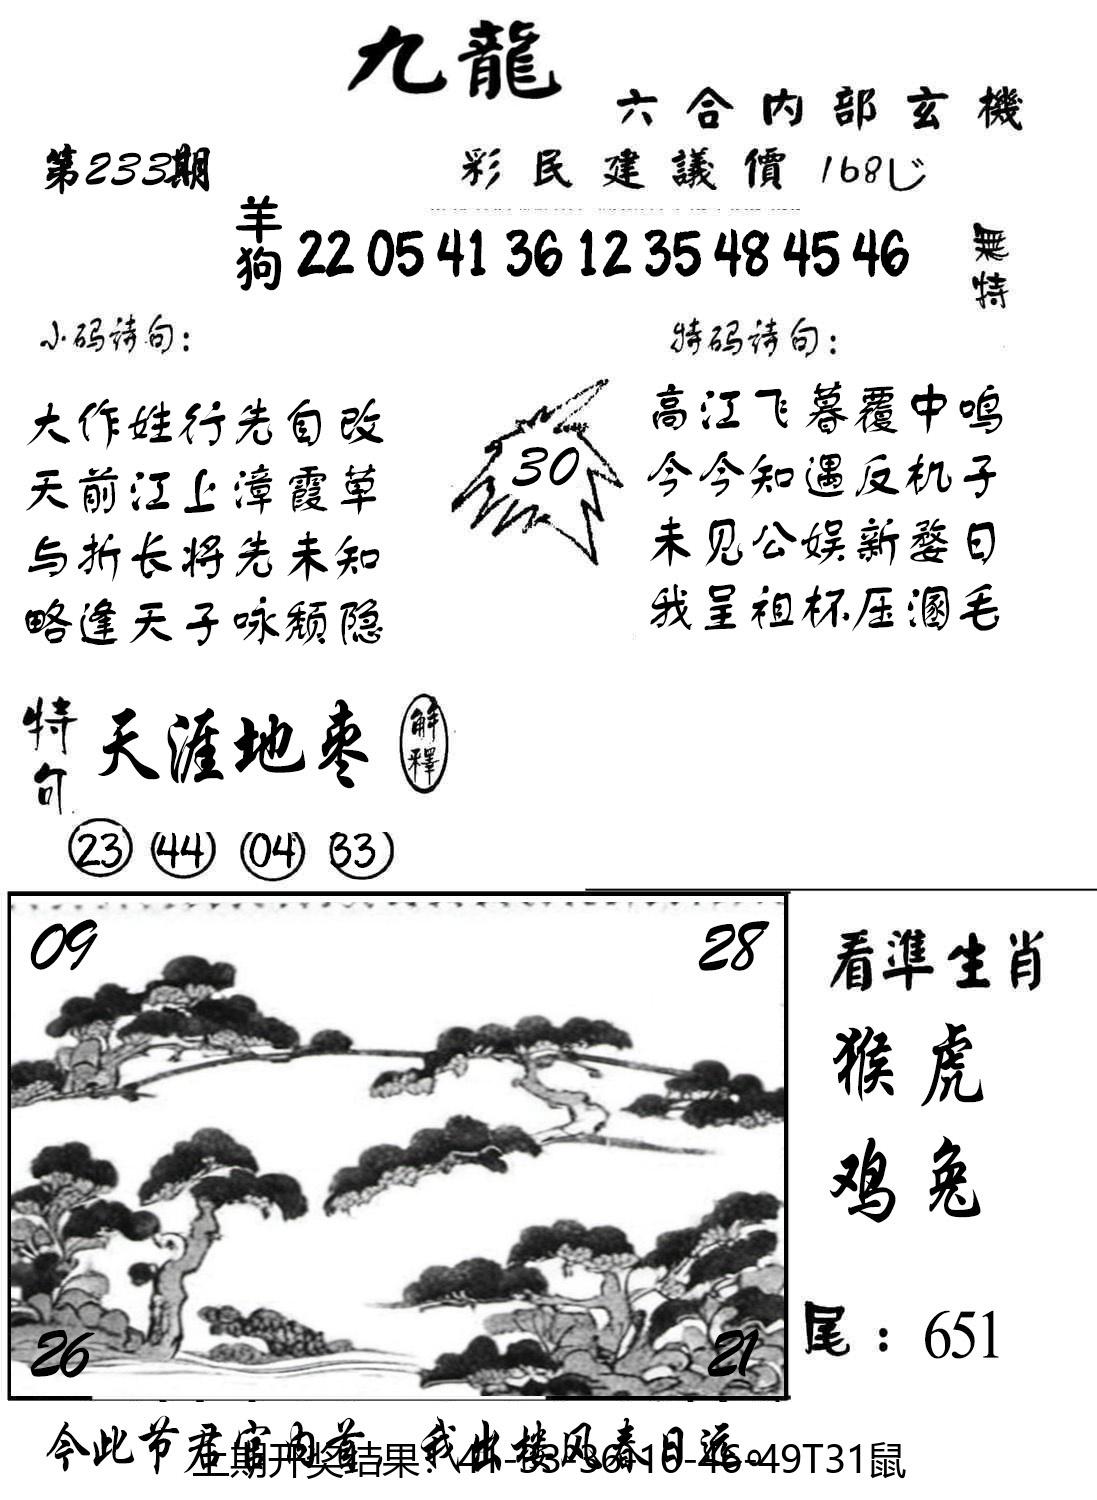 九龍
六合内部玄機
第233期
彩民建議價168じ
羊狗 22 05 41 36 12 35 48 45 46
無特
小码诗句:
特码诗句:
大作姓行先自改
天前江上漳霞草
与折长将先未知
略逢天子咏颓隐
30
高江飞暮覆中鸣
今今知遇反机子
未见公娱新婺日
我呈祖杯压溷毛
特句
天涯地枣
解釋
23 44 04 33
09
28
26
21
看準生肖
猴虎
鸡兔
尾：651
今此节君宿内首 我出楼风春日远。
上期开奖结果：41-33-36-10-46-49T31鼠